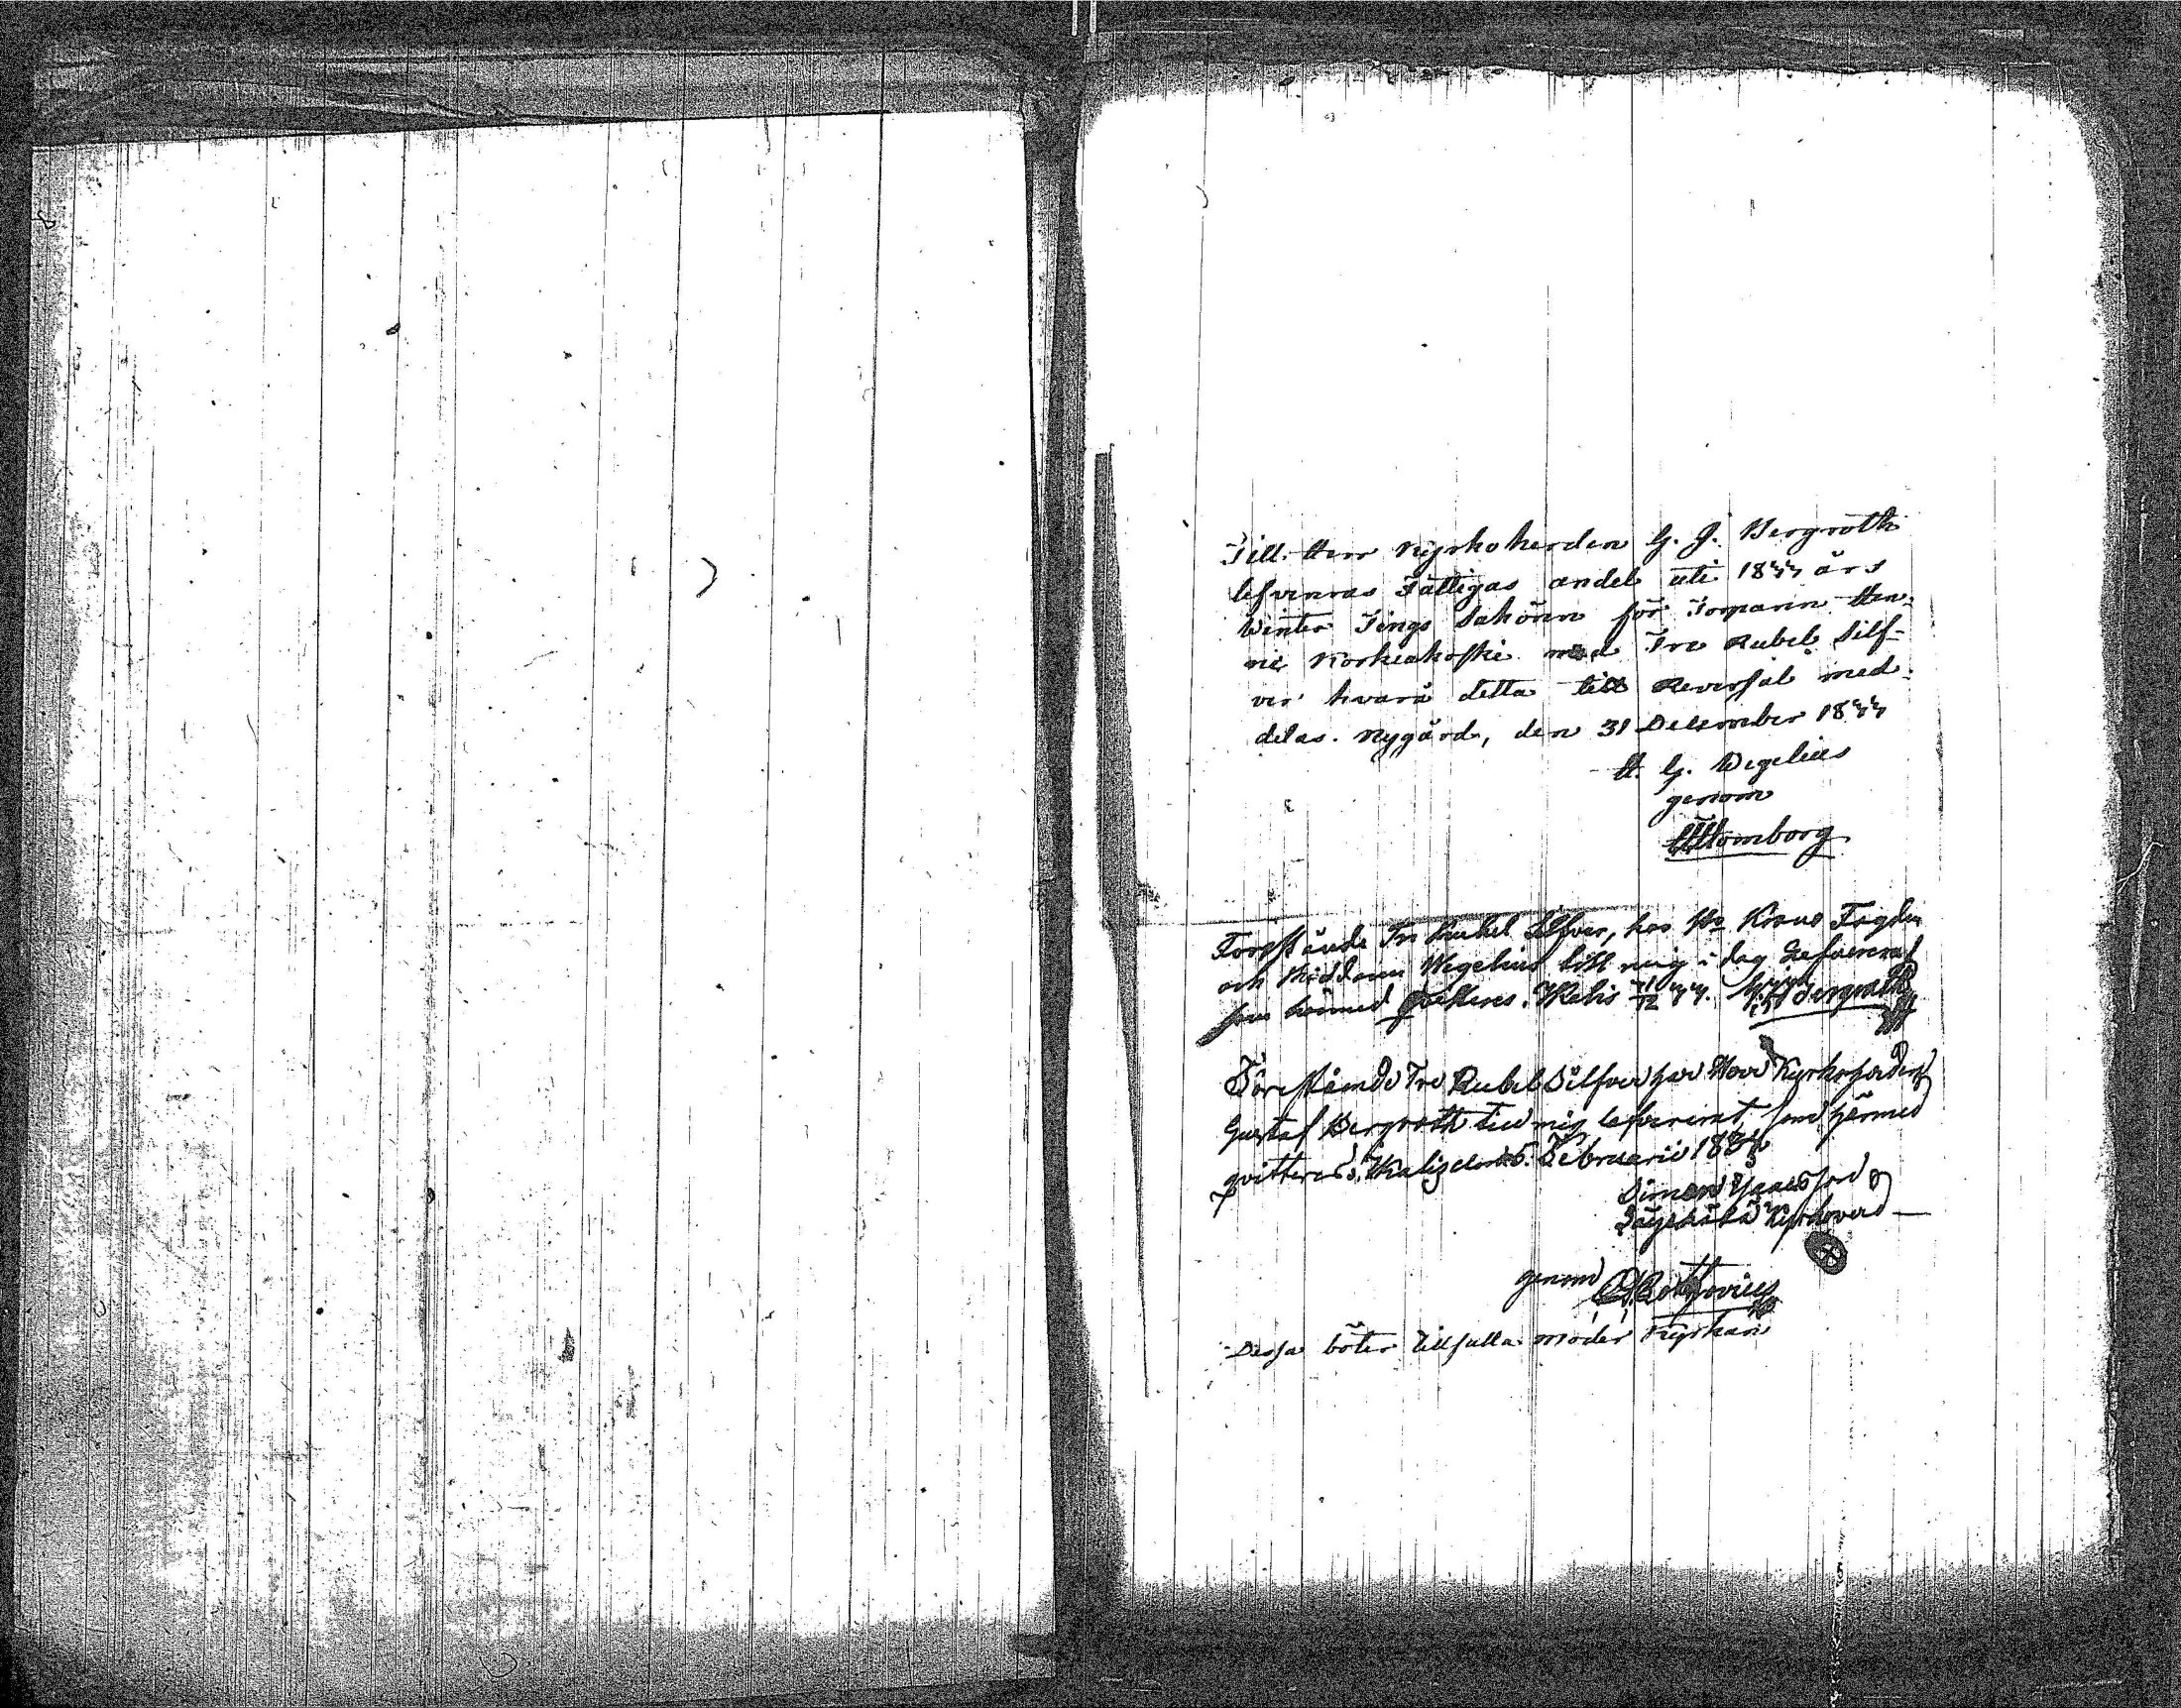 Till Herr Kyrkoherden G. J. Bergroth
lefvereras Fattigas andel uti 1844 års
Winter Tings Sakören för Torparen Hen-
ric Korkeakoski med Tre Rubel Silf-
ver hvarå detta till Reversal med-
delas. Nygård, den 31 December 1844
H. G. Wegelius
genom
Blomborg
Förestående Tre Rubel Silfver, har Hr Krono Fogden
och Riddaren Wegelius till mig i dag Lefvererat
som härmed qvitteras. Ikalis 31/12 44. Bergroth
Förestående Tre Rubel Silfver har Herr Kyrkoherden
Gustaf Bergroth till mig lefvererat, som härmed
qvitteras. Ikalis den Februarii
Simon
Kyrkovärd
genom
Dessa böter tillfalla moder Kyrkan